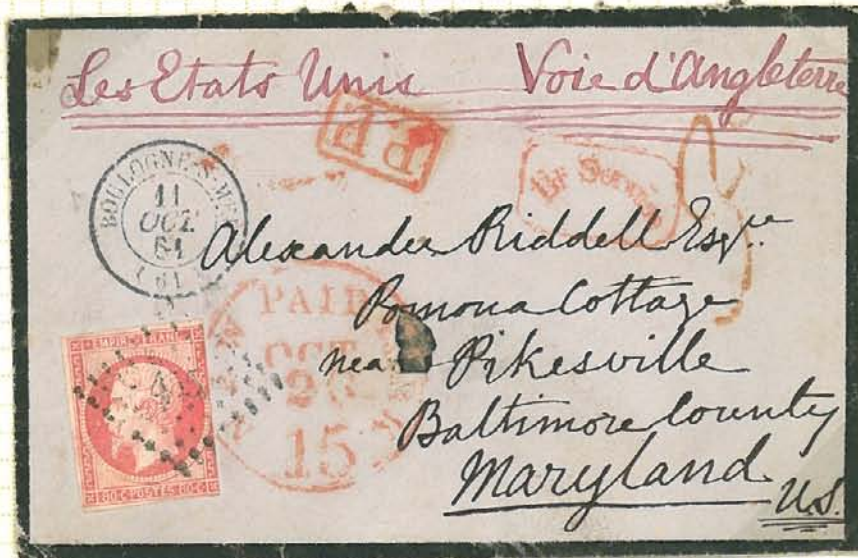 Les Etats Unis Voie d'Angleterre
P.P.
Br Service
BOULOGNE-S-MER
11
OCT.
61
(61)
Alexander Riddell Esqre.
Pomona Cottage
near Pikesville
Baltimore County
Maryland
U.S.
PAID
OCT
15
EMPIRE FRANC
80·C·POSTES·80·C